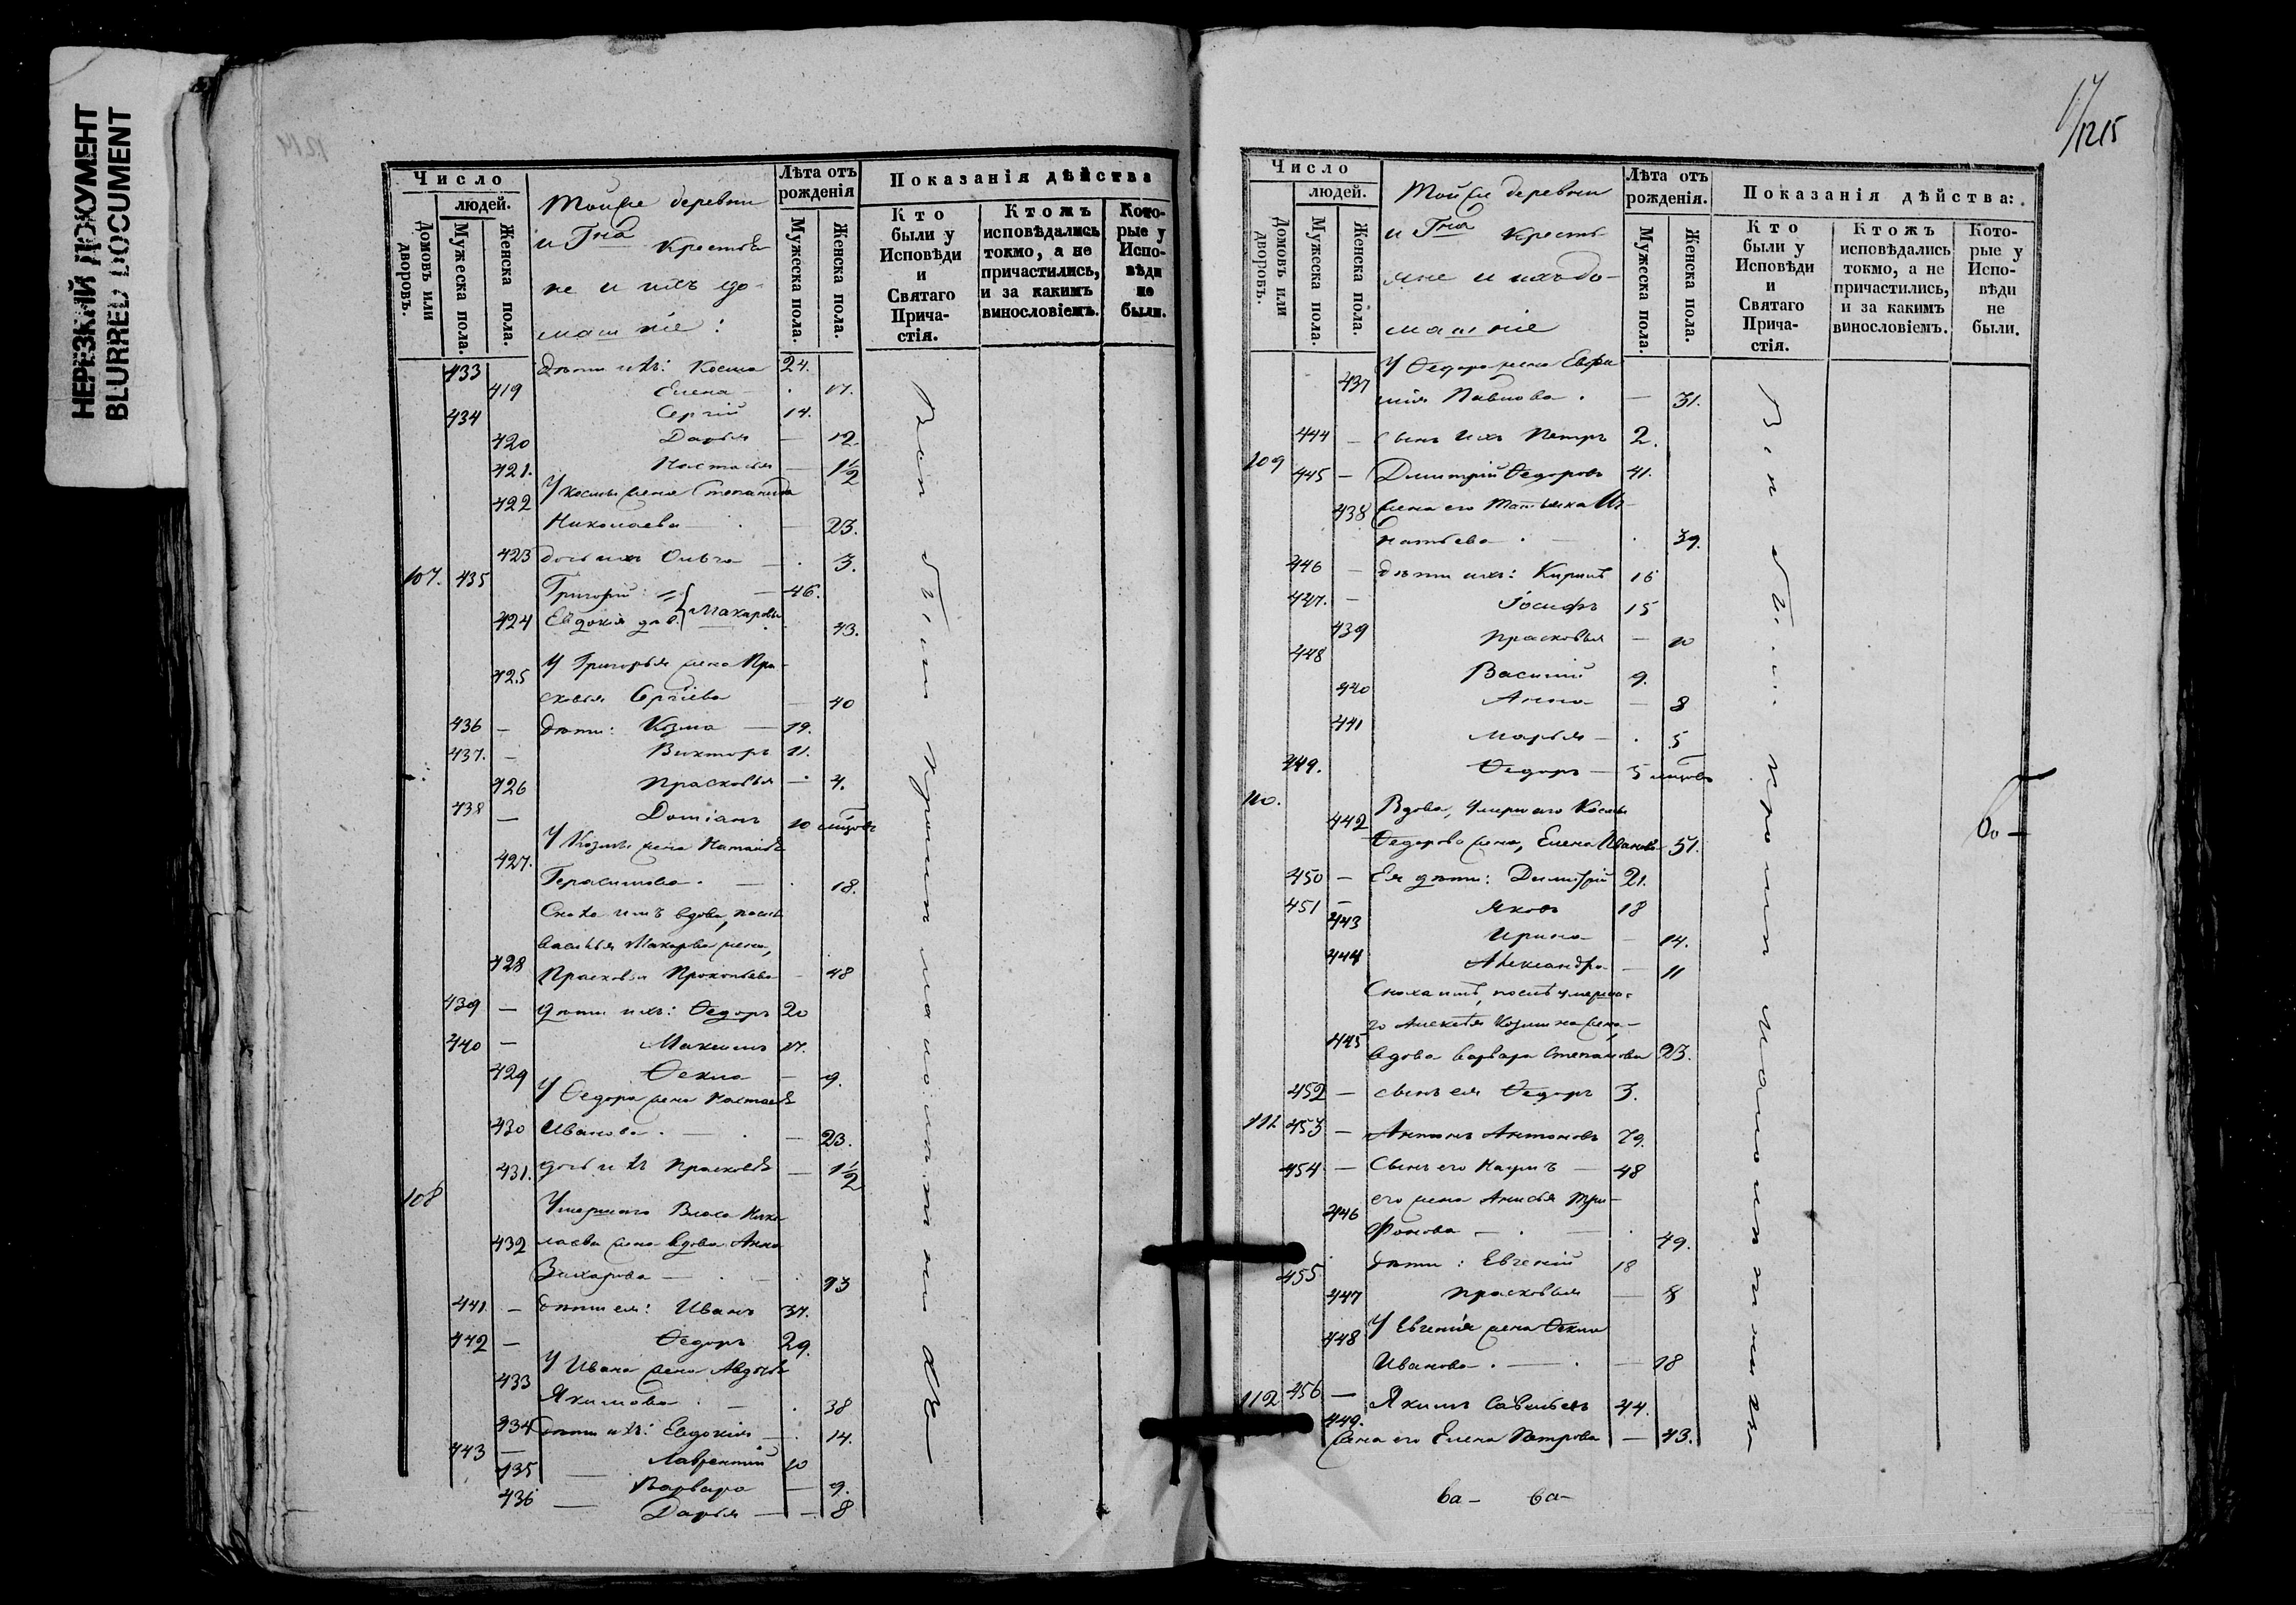 НЕРЕЗКИЙ ДОКУМЕНТ
BLURRED DOCUMENT
1214
Число
людей.
Домовъ или дворовъ.
Мужеска пола.
Женска пола.
Тойже деревни
и Гна Крестья
не и ихъ до-
машніе:
Лѣта отъ рожденія
Мужеска пола.
Женска пола.
Показанія дѣйства
Кто были у Исповѣди и Святаго Прича-стія.
Ктожъ исповѣдались токмо, а не причастились, и за какимъ винословіемъ.
Кото-рые у Испо-вѣди не были.
433 дѣти ихъ: Косма 24.
419 Елена . 17.
434 Сергій 14.
420 Дарья — 12
421. Настасья — 1½
422 У Космы жена Степанида
Николаева — . — 23.
423 дочь ихъ Ольга — . 3.
107. 435 Григорій — 46.
424 Евдокія дѣв. Макаровы 43.
425 У Григорья жена Пра-
сковья Сргіева — 40
436 — дѣти: Козма — 19.
437. — Викторъ 11.
426 Прасковья — 4.
438 — Доміанъ 10 мцовъ
427. У Козмы жена Наталія
Герасимова . — . 18.
Сноха имъ вдова, послѣ
Василья Макарова жена,
428 Прасковья Прокопьева — 48
439 — дѣти ихъ: Ѳедоръ 20
440 — Максимъ 17.
429 Ѳекла — 9.
У Ѳедора жена Настасья
430 Иванова . — . — 23.
431. дочь ихъ Прасковья — 1½
108 Умершаго Власа Нико
432 лаева жена вдова Анна
Захарова — . — . 73
441. — дѣти ея: Иванъ 37.
442 — Ѳедоръ 29.
433 У Ивана жена Авдотья
Якимова . — . 38
434 дѣти ихъ: Евдокія — . 14.
443 — Лаврентій 10
435 — Варвара — 9.
436 — Дарья — — 8
1215
Число
людей.
Домовъ или дворовъ.
Мужеска пола.
Женска пола.
Тойже деревни
и Гна Кресть-
яне и ихъ до-
машніе
Лѣта отъ рожденія.
Мужеска пола.
Женска пола.
Показанія дѣйства:
Кто были у Исповѣди и Святаго Прича-стія.
Ктожъ исповѣдались токмо, а не причастились, и за какимъ винословіемъ.
Кото-рые у Испо-вѣди не были.
437 У Ѳедора жена Евфи
мія Павлова . — 31.
444 — сынъ ихъ Петръ 2.
109 445 — Дмитрій Ѳедоровъ 41.
438 жена его Татьяна Иг-
натьева . — . 39.
446 — дѣти ихъ: Кирилъ 16
447. — Іосифъ 15
439 Прасковья — 10
448 Василій 9.
440 Анна — 8
441 Марья — . 5
449. Ѳедоръ — 5 мцовъ
110. 442 Вдова, умершаго Космы
Ѳедорова жена, Елена Иванова 51.
450 — Ея дѣти: Димитрій 21.
451 — Яковъ 18
443 Ирина — 14.
444 Александра — 11
Сноха имъ, послѣ умерша-
го Алексѣя Козмина жена
445 вдова Варвара Степанова 23.
452 — сынъ ея Ѳедоръ 3.
111 453 — Антонъ Антоновъ 79.
454 — Сынъ его Наумъ — 48
446 его жена Анисья Три-
фонова — . — . 49.
455 дѣти: Евгеній 18
447 Прасковья — 8
448 У Евгенія жена Ѳекла
Иванова . — . — 18
112 456 — Якимъ Савельевъ 44.
449. Жена его Елена Петрова — 43.